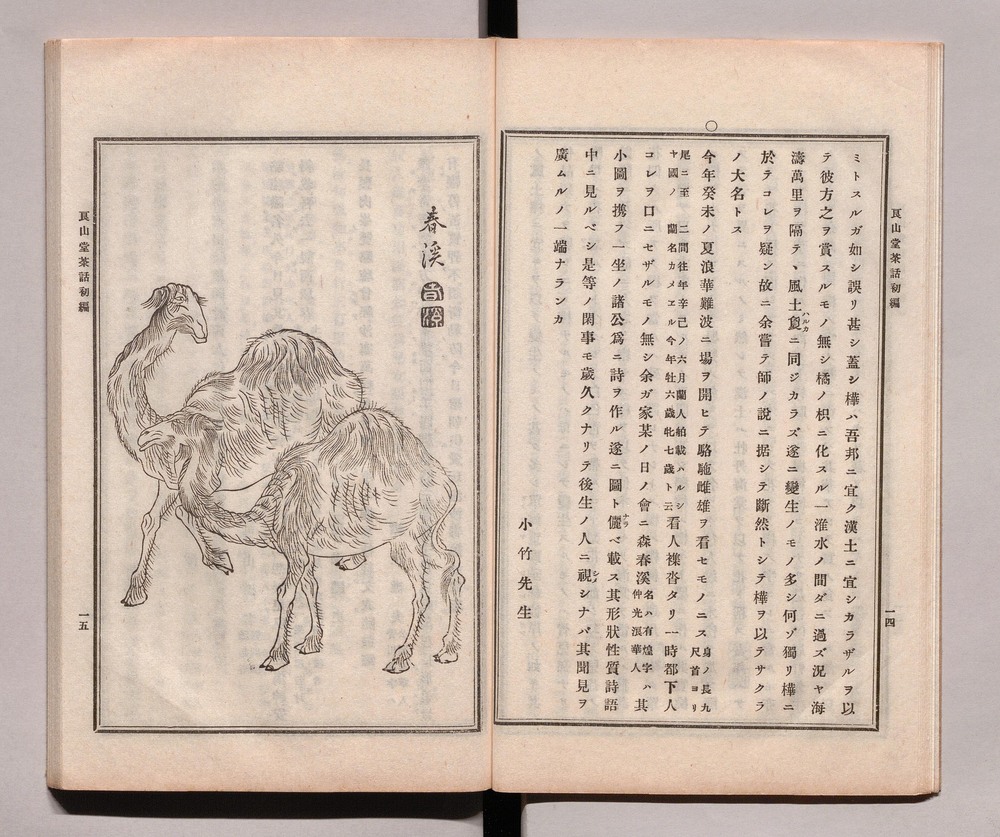 艮山堂茶話初編
一四
ミトスルガ如シ誤リ甚シ蓋シ樺ハ吾邦ニ宜ク漢土ニ宜シカラザルヲ以
テ彼方之ヲ賞スルモノ無シ橘ノ枳ニ化スル一淮水ノ間ダニ過ズ況ヤ海
濤萬里ヲ隔テヽ風土敻ハルカニ同ジカラズ遂ニ變生ノモノ多シ何ゾ獨リ樺ニ
於テコレヲ疑ン故ニ余嘗テ師ノ説ニ据シテ斷然トシテ樺ヲ以テサクラ
ノ大名トス
○
今年癸未ノ夏浪華難波ニ場ヲ開ヒテ駱駞雌雄ヲ看セモノニス身ノ長九尺首ヨリ
尾ニ至二間往年辛己ノ六月蘭人舶載ハルシヤ國ノ蘭名カメエル今年牡六歳牝七歳ト云看人襍沓タリ一時都下人
コレヲ口ニセザルモノ無シ余ガ家某ノ日ノ會ニ森春溪名ハ有煌字ハ仲光浪華人其
小圖ヲ携フ一坐ノ諸公爲ニ詩ヲ作ル遂ニ圖ト儷ナラベ載ス其形狀性質詩語
中ニ見ルベシ是等ノ閑事モ歳久クナリテ後生ノ人ニ視シメシナバ其聞見ヲ
廣ムルノ一端ナランカ
小竹先生
春溪
艮山堂茶話初編
一五